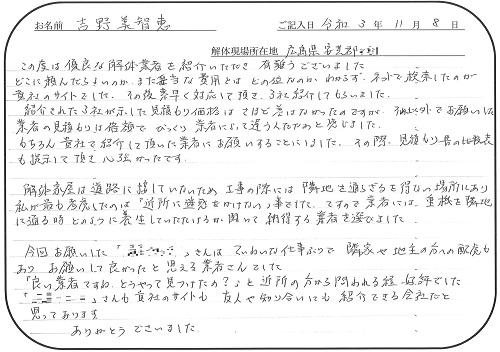 お名前 吉野 美智恵 ご記入日 令和 3 年 11 月 8 日
解体現場所在地 広島県安芸郡
この度は優良な解体業者を紹介いただき 有難うございました
どこに頼んだらよいのか、また適当な費用とは どの位なのか わからず、ネットで検索したのが
貴社のサイトでした。その後素早く対応して頂き、3社紹介してもらいました。
紹介された3社が示した見積もり価格は さほど差はなかったのですが、それ以外でお願いした
業者の見積もりは倍額で びっくり 業者によって違うんだなぁと感じました。
もちろん貴社で紹介して頂いた業者にお願いすることにいました。その際、見積もり書の比較表
も提示して頂き 心強かったです。
解体家屋は道路に接していないため 工事の際には 隣地を通らざるを得ない場所にあり
私が最も考慮したのは「近所に迷惑をかけない」事でした。ですので業者には、重機を隣地
に通る時 どのように養生していただけるか聞いて 納得する業者を選びました。
今回お願いした「 」さんは ていねいな仕事ぶりで 隣家や地主の方への配慮も
あり お願いして良かったと思える業者さんでした
「良い業者ですね、どうやって見つけたの?」と近所の方から問われる程 好評でした
「 」さんも貴社のサイトも 友人や知り合いにも 紹介できる会社だと
思っております
ありがとうございました